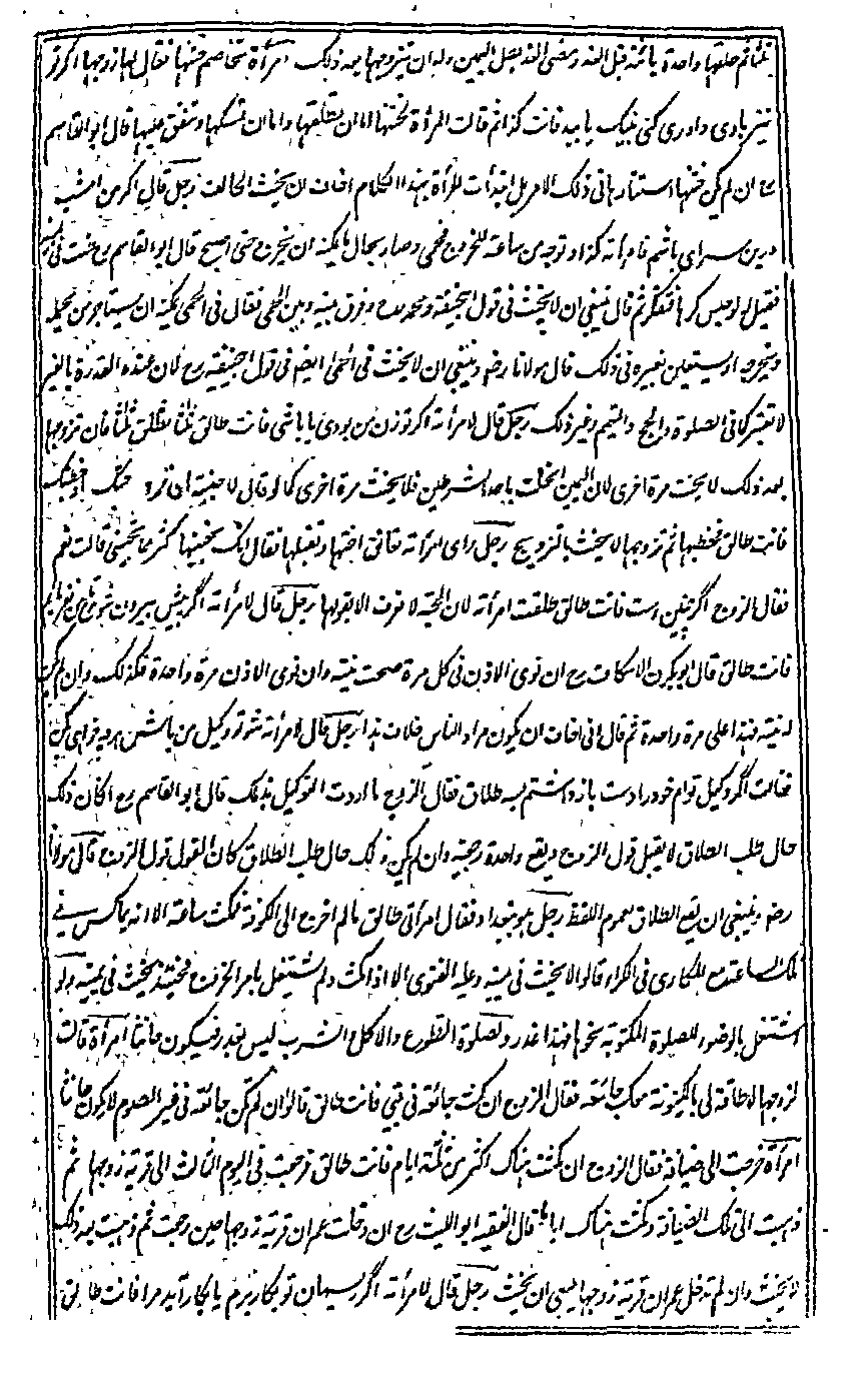 ثلثا ثم طلقها واحدة بائنة قبل الغد ومضى الغد بطل اليمين وله ان يتزوجها بعد ذلك امرأة تخاصم ختنها فقال لها زوجها اكر تو
بادى داورى كنى بنيك يا ببد فانت كذا ثم قالت المرأة لختنها اما ان يطلقها واما ان يمسكها وينفق عليها قال ابو القاسم
رح ان لم يكن ختنها استشارها فى ذلك الامر بل ابتدأت المرأة بهذا الكلام اخاف ان يحنث الحالف رجل قال اكر من امشب
درين سراى باشم فامرأته كذا وتوجه من ساعته للخروج فحم وصار بحال لا يمكنه ان يخرج حتى اصبح قال ابو القاسم رح حنث فى
فقيل له لو حبس كرها فتفكر ثم قال ينبغى ان لا يحنث فى قول ابيحنيفة ومحمد رح وفرق بينه وبين الحمى فقال فى الحمى يمكنه ان يستاجر من يحمله
ويخرجه او يستعين بغيره فى ذلك قال مولانا رضه وينبغى ان لا يحنث فى الحمى ايضا فى قول ابيحنيفة رح لان عنده القدرة بالغير
لا تعتبر كما فى الصلوة والحج والتيمم وغير ذلك رجل قال لامرأته اكر تو زن من بودى يا باشى فانت طالق ثلثا فطلق ثلثا فان تزوجها
بعد ذلك لا يحنث مرة اخرى لان اليمين انحلت باحد الشرطين فلا يحنث مرة اخرى كما لو قال لاجنبية ان تزوجتك او خطبتك
فانت طالق فخطبها ثم تزوجها لا يحنث بالتزويج رجل راى امرأته تعانق اختها وتقبلها فقال انك تحبينها اكثر مما تحبينى قالت نعم
فقال الزوج اگر چنين است فانت طالق طلقت امرأته لان المحبة لا تعرف الا بقولها رجل قال لامرأته اگر پيش بيرون شوى
فانت طالق قال ابو بكر الاسكاف رح ان نوى الاذن فى كل مرة صحت نيته وان نوى الاذن مرة واحدة فكذلك وان لم يكن
له نية فهذا على مرة واحدة ثم قال انى اخاف ان يكون مراد الناس خلاف هذا رجل قال لامرأته شو تو وكيل من باش هر چه خواهى كن
فقالت اگر وكيل توام خود را دست باز داشتم بسه طلاق فقال الزوج ما اردت التوكيل بذلك قال ابو القاسم رح ان كان ذلك
حال طلب الطلاق لا يقبل قول الزوج ويقع واحدة رجعية وان لم يكن ذلك حال طلب الطلاق كان القول قول الزوج قال مولانا
رضه وينبغى ان يقع الطلاق لعموم اللفظ رجل هو ببغداد فقال امرأتى طالق ما لم اخرج الى الكوفة فمكث ساعة الا انه يماكس فى
تلك الساعة مع المكارى فى الكراء قالوا لا يحنث فى يمينه وعليه الفتوى الا اذا مكث ولم يشتغل بامر الخروج فحينئذ يحنث فى يمينه ولو
اشتغل بالوضوء للصلوة المكتوبة نحوها فهذا عذر والصلوة التطوع والاكل والشرب ليس بعذر فيكون حانثا امرأة قالت
لزوجها لا طاقة لى بالكينونة معك جائعة فقال الزوج ان كنت جائعة فى بيتى فانت طالق قالوا ان لم تكن جائعة فى غير الصوم لا يكون حانثا
امرأة خرجت الى ضيافة فقال الزوج ان مكثت هناك اكثر من ثلثة ايام فانت طالق فرجعت فى اليوم الثالث الى قرية زوجها ثم
ذهبت الى تلك الضيافة ومكثت هناك اياما قال الفقيه ابو الليث رح ان دخلت عمران قرية زوجها حين رجعت ثم ذهبت بعد ذلك
لا يحنث وان لم تدخل عمران قرية زوجها ينبغى ان يحنث رجل قال لامرأته اگر ريسمان تو بكار برم يا بكار آيد مرا فانت طالق